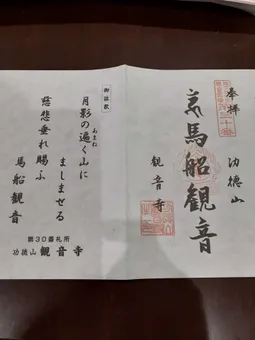 奉拝
馬船観音
功徳山
観音寺
御詠歌
月影の遍く山に
あまね
ましませる
慈悲垂れ賜ふ
馬船観音
第30番札所
功徳山 観音寺